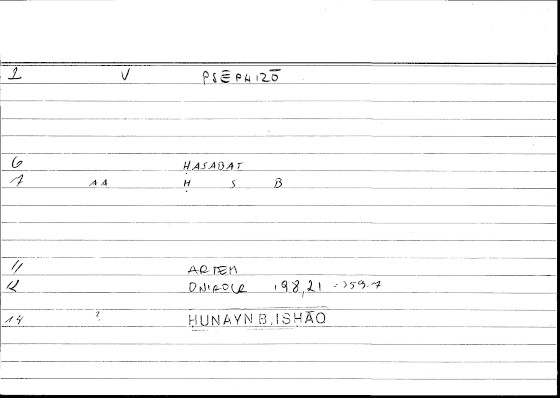 1 V PSĒPHIZŌ
6 ḤASABAT
7 AA Ḥ S B
11 ARTEM
12 ONIROCR 198,21
14 ? HUNAYN B. ISHĀQ